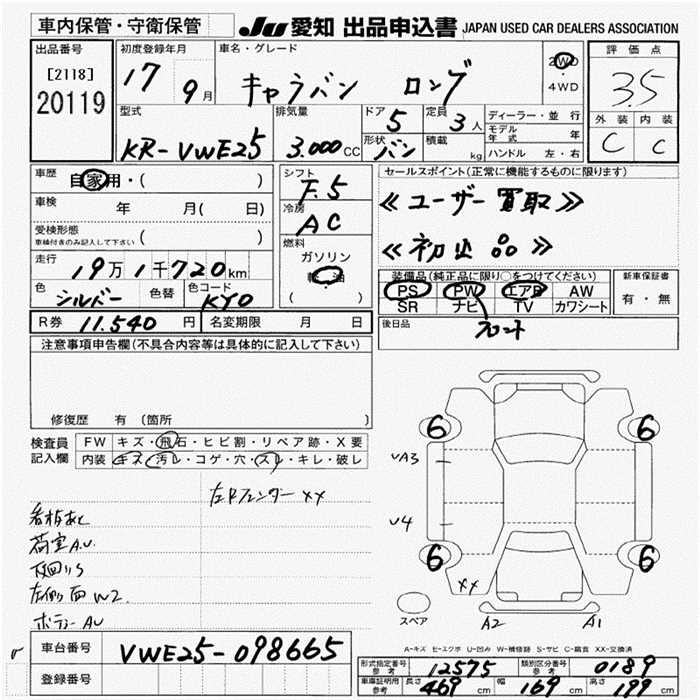 車内保管・守衛保管
JU 愛知 出品申込書 JAPAN USED CAR DEALERS ASSOCIATION
出品番号
[2118]
20119
初度登録年月
17 9月
車名・グレード
キャラバン ロング
2WD
・
4WD
評価点
3.5
外装 内装
C C
型式
KR-VWE25
排気量
3.000cc
ドア
5
形状
バン
定員
3人
積載
kg
ディーラー・並行
モデル年式 年
ハンドル 左・右
車歴
自家用・( )
車検
年 月( 日)
受検形態
車検付きのみ記入して下さい ( )
走行
19万1千720km
色
シルバー
色替
色コード
KY0
シフト
F.5
冷房
AC
燃料
ガソリン
軽油
( )
セールスポイント(正常に機能するものに限ります)
≪ユーザー買取≫
≪初出品≫
装備品(純正品に限り○をつけてください)
PS PW エアB AW
SR ナビ TV カワシート
フロント
新車保証書
有・無
後日品
R券 11.540円
名変期限 月 日
注意事項申告欄(不具合内容等は具体的に記入して下さい)
修復歴 有(箇所 )
検査員記入欄
FW キズ・飛石・ヒビ割・リペア跡・X要
内装 キズ・汚レ・コゲ・穴・スレ・キレ・破レ
左Rフェンダー XX
看板あと
荷室A.U.
下回りS
左側面W2
ボディーAU
6 6
UA3
U4
6 6
XX
スペア
A2 A1
A-キズ E-エクボ U-凹み W-補修跡 S-サビ C-腐食 XX-交換済
車台番号
VWE25-098665
登録番号
形式指定番号 参考 12575
類別区分番号 参考 0189
車庫証明用 参考 長さ 469cm 幅 169cm 高さ 199cm